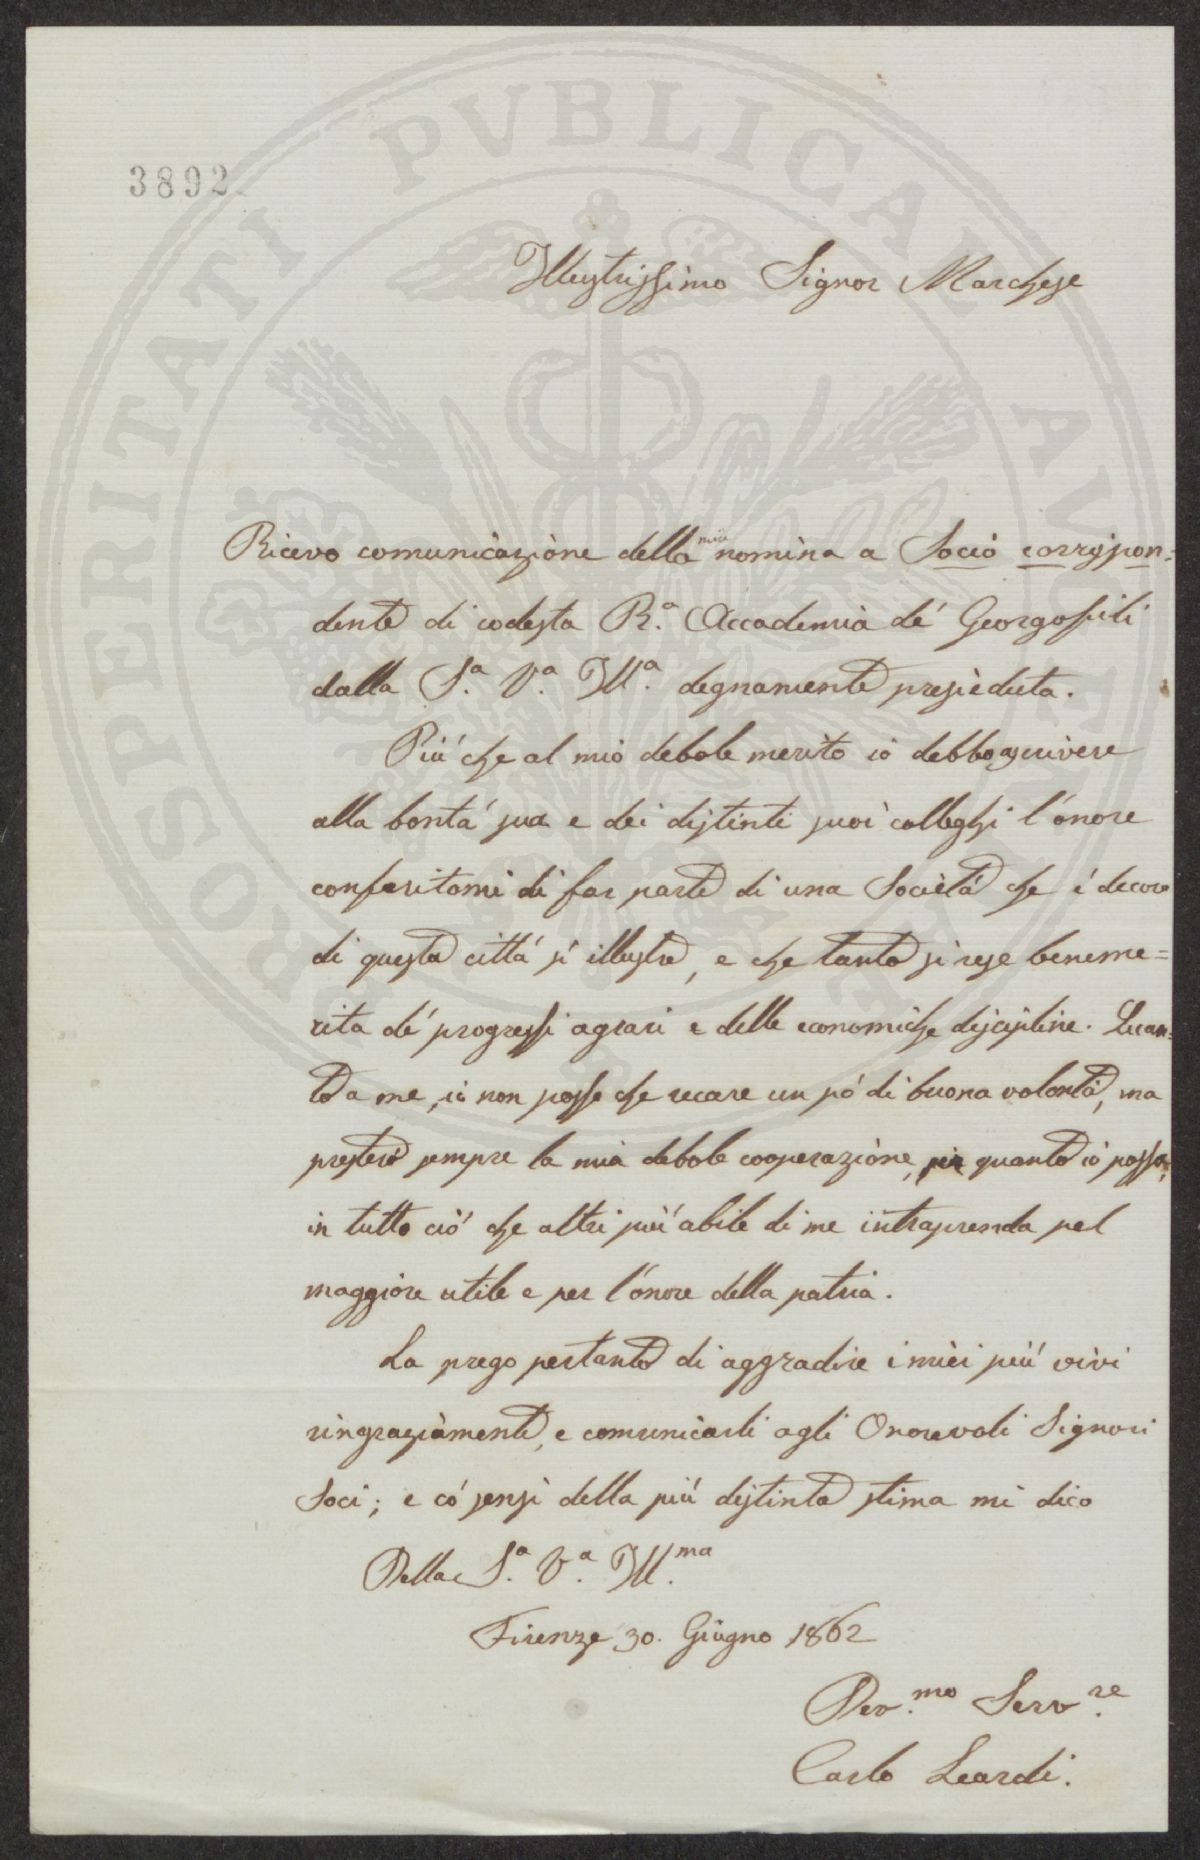 PROSPERITATI PVBLICAE AVGENDAE
3892
Illustrissimo Signor Marchese
Ricevo comunicazione della mia nomina a Socio corrispon=
dente di codesta R.a Accademia de' Georgofili
dalla S.a V.a Ill.a degnamente presieduta.
Più che al mio debole merito io debbo ascrivere
alla bontà sua e dei distinti suoi colleghi l'onore
conferitomi di far parte di una Società che è decoro
di questa città sì illustre, e che tanto si rese beneme=
rita de' progressi agrari e delle economiche discipline. Quan=
to a me, io non posso che recare un pò di buona volontà, ma
presterò sempre la mia debole cooperazione, per quanto io posso,
in tutto ciò che altri più abile di me intraprenda pel
maggiore utile e per l'onore della patria.
La prego pertanto di aggradire i miei più vivi
ringraziamenti, e comunicarli agli Onorevoli Signori
Soci; e co' sensi della più distinta stima mi dico
Della S.a V.a Ill.ma
Firenze 30. Giugno 1862
Dev.mo Serv.re
Carlo Leardi.